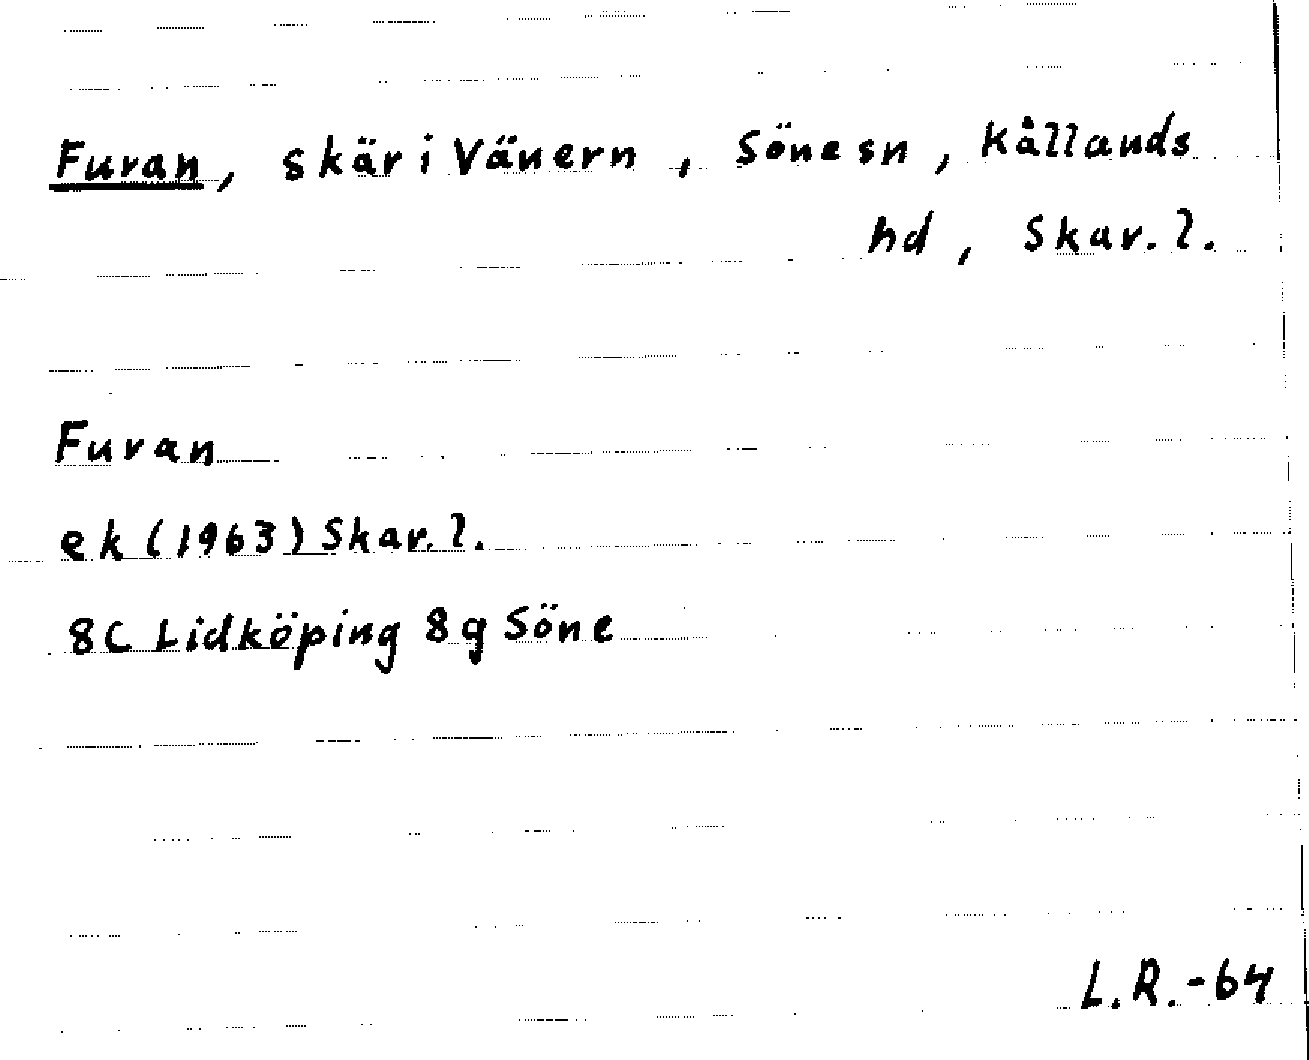 Furan, skär i Vänern, Söne sn, Kållands
hd, Skar. l.
Furan
ek (1963) Skar. l.
8C Lidköping 8g Söne
L.R.-64